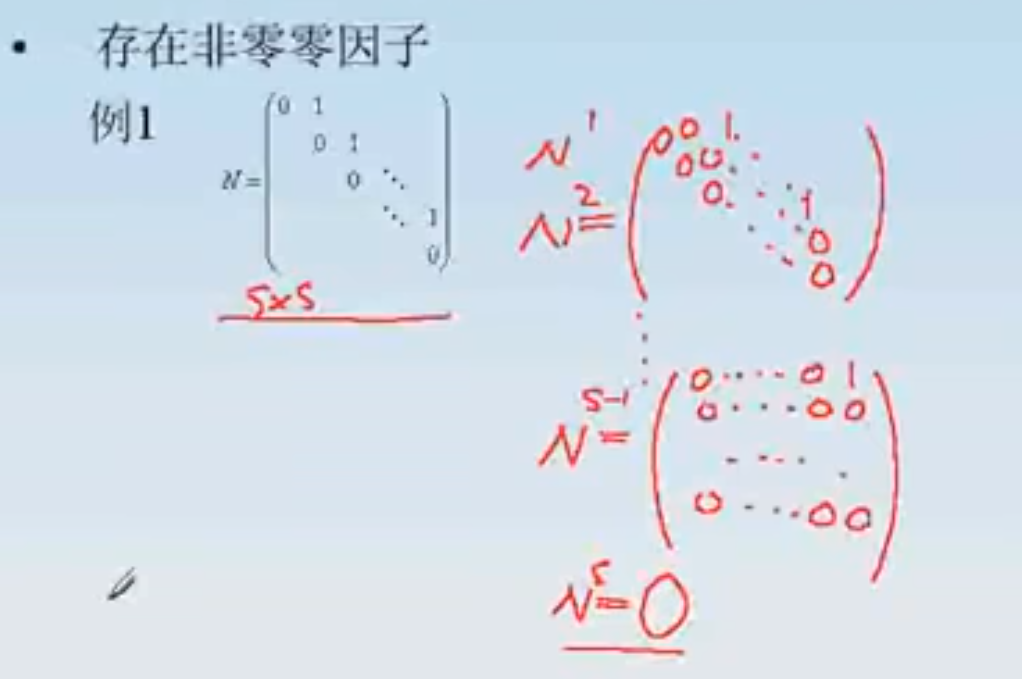 • 存在非零零因子
例1
N=
0 1
0 1
0 ⋱
⋱ 1
0
5×5
N¹
N²=
0 0 1
0 0
0 1
0
0
N⁵⁻¹=
0 ···· 0 1
0 ··· 0 0
- ··· .
0 ···· 0 0
N⁵=0